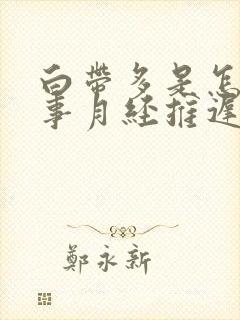 白帶多是怎
事月经推遲
鄭永新